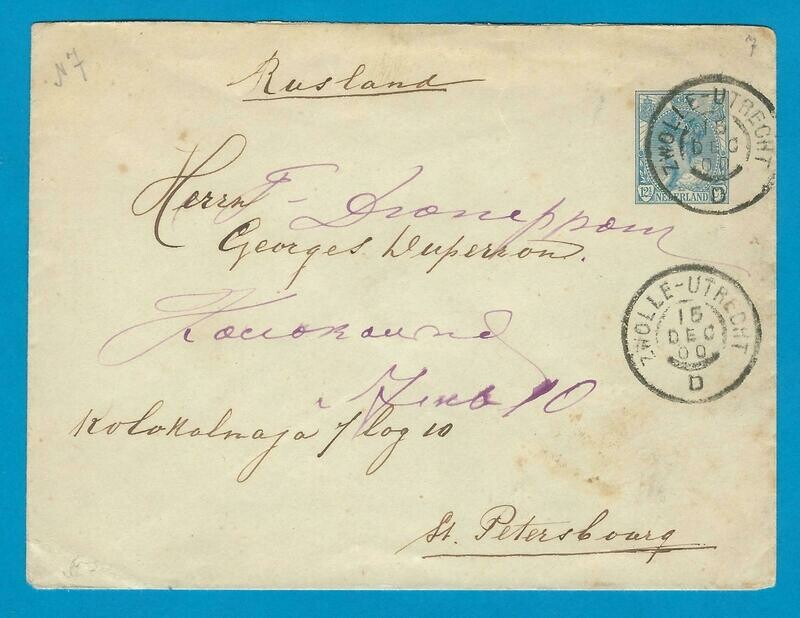 N 7
7
Rusland
ZWOLLE-UTRECHT
15
DEC
00
D
12½
NEDERLAND
Herrn
Georges Duperron.
ZWOLLE-UTRECHT
15
DEC
00
D
10
Kolokalnaja / log 10
St. Petersbourg